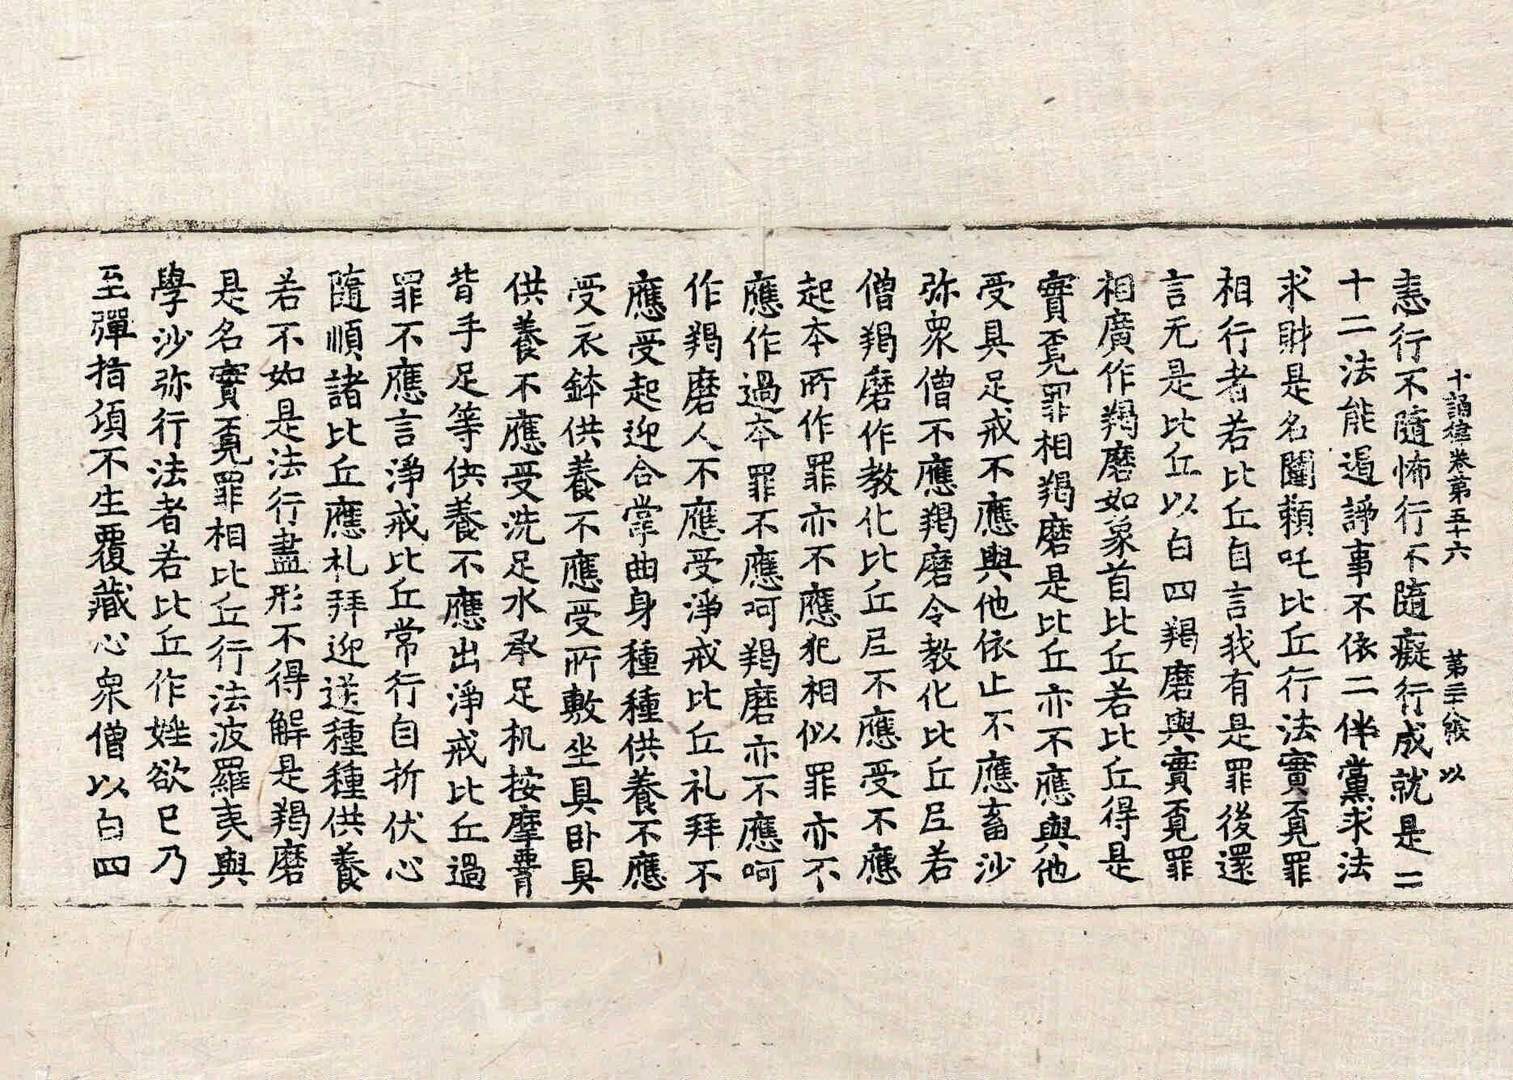 十誦律卷第五十六 第三十二餤 以
恚行不隨怖行不隨癡行成就是二
十二法能遏諍事不依二伴黨求法
求財是名闥頼吒比丘行法實覔罪
相行者若比丘自言我有是罪後還
言无是比丘以白四羯磨與實覔罪
相廣作羯磨如象首比丘若比丘得是
實覔罪相羯磨是比丘亦不應與他
受具足戒不應與他依止不應畜沙
弥衆僧不應羯磨令教化比丘尼若
僧羯磨作教化比丘尼不應受不應
起本所作罪亦不應犯相似罪亦不
應作過本罪不應呵羯磨亦不應呵
作羯磨人不應受淨戒比丘礼拜不
應受起迎合掌曲身種種供養不應
受衣鉢供養不應受所敷坐具卧具
供養不應受洗足水承足机按摩䐡
背手足等供養不應出淨戒比丘過
罪不應言淨戒比丘常行自折伏心
隨順諸比丘應礼拜迎送種種供養
若不如是法行盡形不得解是羯磨
是名實覔罪相比丘行法波羅夷與
學沙弥行法者若比丘作婬欲已乃
至彈指頃不生覆藏心衆僧以白四